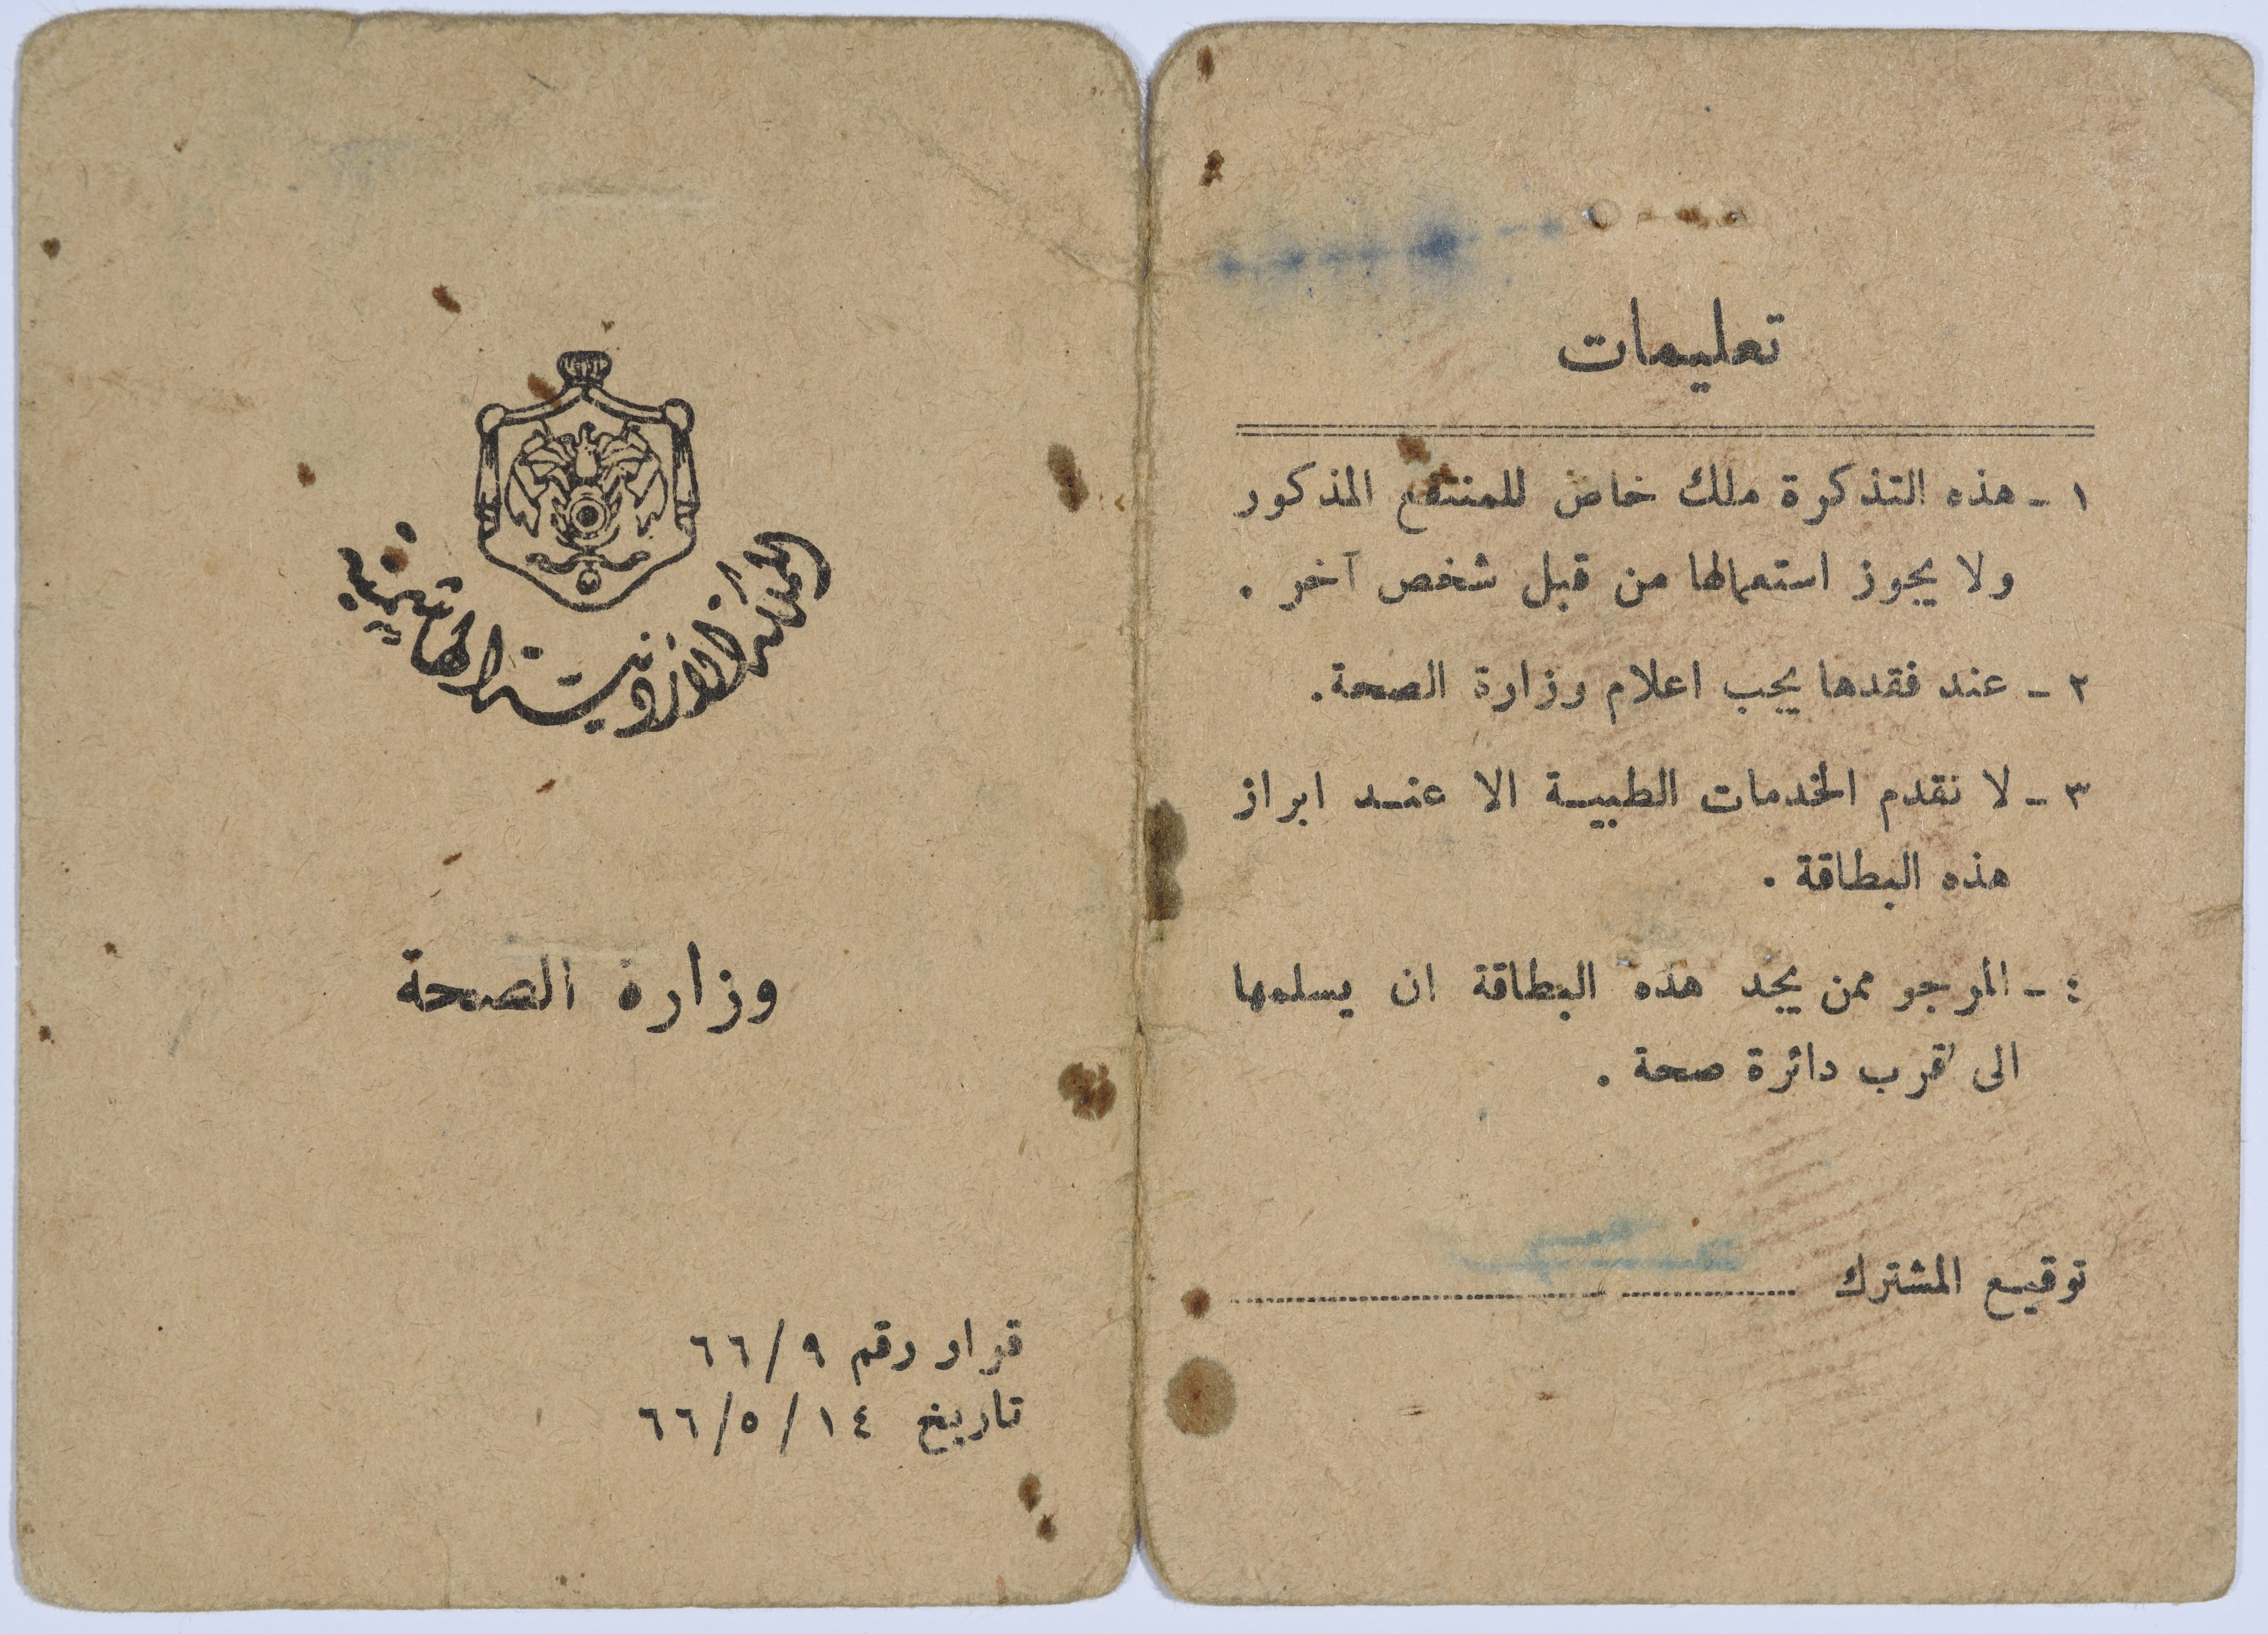 تعليمات
١ - هذه التذكرة ملك خاص للمنتفع المذكور
ولا يجوز استعمالها من قبل شخص آخر .
٢ - عند فقدها يجب اعلام وزارة الصحة .
٣ - لا نقدم الخدمات الطبيـة الا عنـد ابراز
هذه البطاقة .
٤ - المرجو ممن يجد هذه البطاقة ان يسلمها
الى قرب دائرة صحة .
توقيـع المشترك
المملكة الاردنية الهاشمية
وزارة الصحة
قرار رقم ٦٦/٩
تاريخ ٦٦/٥/١٤